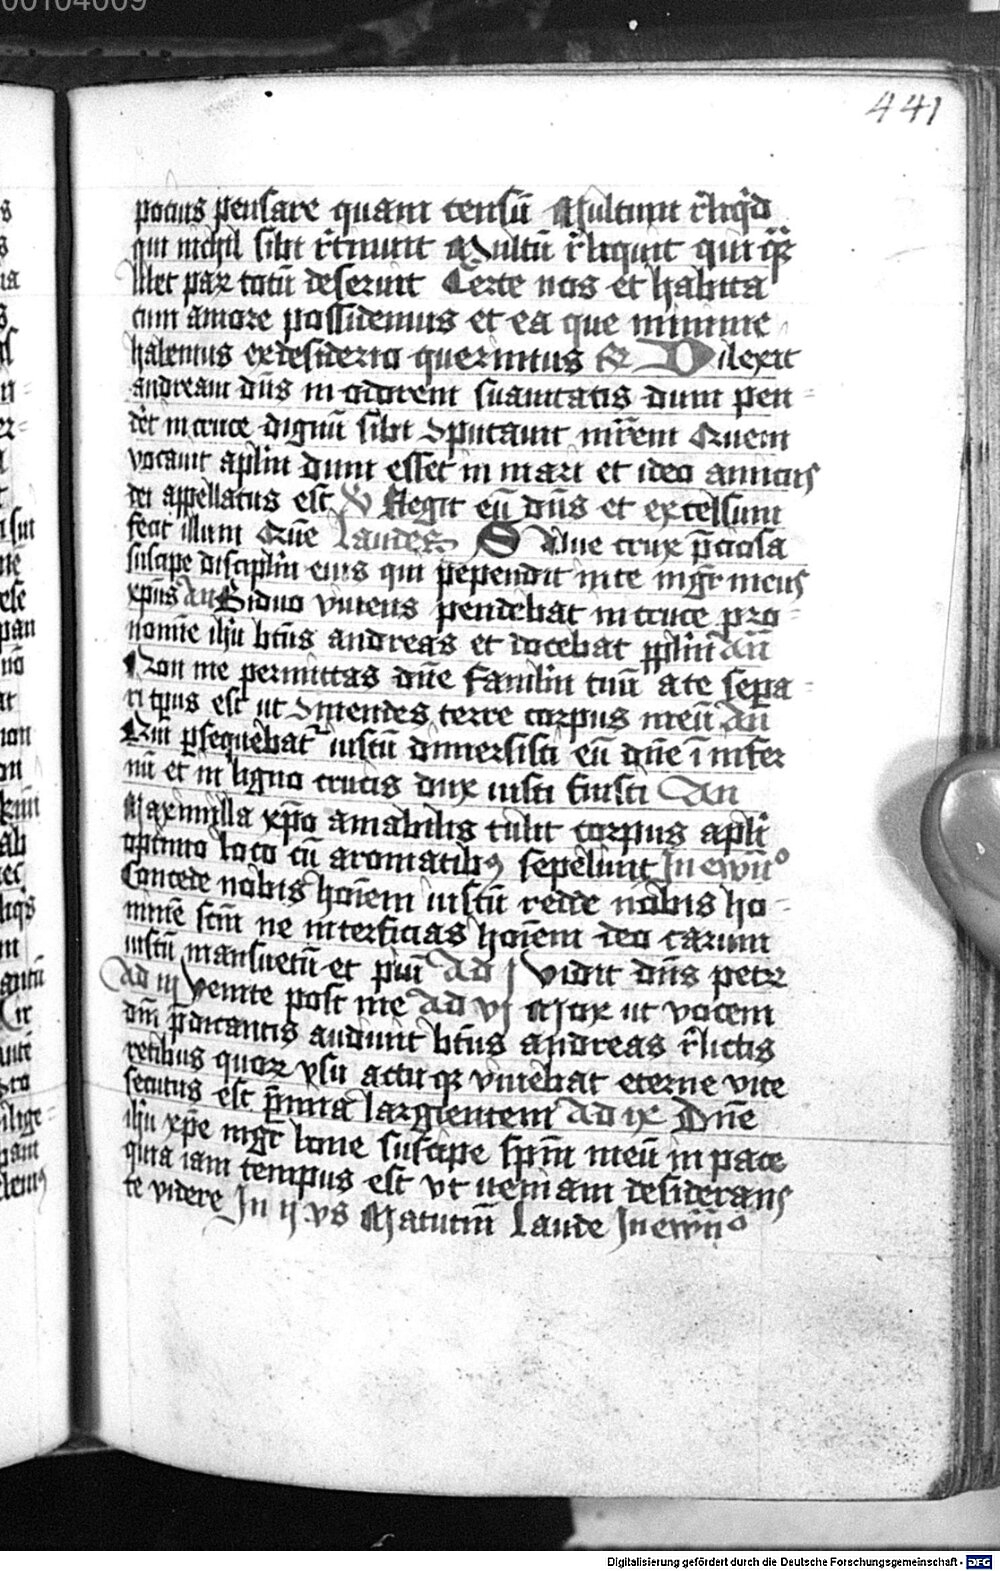 00104009
441
pocius pensare quam censū Multum r̄liq̄d
qui nichil sibi r̄tinuit Multū r̄liquit qui q̄r
libet par totū deseruit Certe nos et habita
cum amore possidemus et ea que minime
habemus ex desiderio querimus R Dilexit
andream dn̄s in odorem suauitatis dum pen-
d̄et in cruce dignū sibi 9putauit mr̄em Quem
vocauit ap̄lm dum esset in mari et ideo amicus
dei appellatus est V Elegit eū dn̄s et excelsum
fecit illum Quē Laudes Salue crux p̄ciosa
suscipe discip̄lm eius qui pependit in te mgr̄ meus
xp̄us An Biduo viuens pendebat in cruce pro-
nomīe ih̄u bt̄us andreas et docebat pp̄lm An̄
Non me permittas dn̄e famulm̄ tuū a te sepa-
ri tp̄us est ut 9mendes terre corpus meū An
Qui p̄sequebat᷑ iustū dimersisti eū dn̄e ī infer
nū et in ligno crucis dux iusti fuisti An
Maximilla xp̄o amabilis tulit corpus ap̄li
optimo loco cū aromatib9 sepeliuit In ewn̄o
Concede nobis hoīem iustū redde nobis ho-
minē sc̄m ne interficias hoīem deo carum
iustū mansuetū et piū Ad j vidit dn̄s petr
Ad iij venite post me Ad vj Mox ut vocem
dn̄i p̄dicantis audiuit bt̄us andreas r̄lictis
retibus quor vsu actuq3 viuebat eterne vite
secutus est p̄mia largientem Ad ix Dn̄e
ih̄u xp̄e mgr̄ bone suscipe sp̄m meū in pace
quia iam tempus est vt veniam desiderans
te videre In ij vs Matutin̄ Laude In ewn̄o
Digitalisierung gefördert durch die Deutsche Forschungsgemeinschaft - DFG